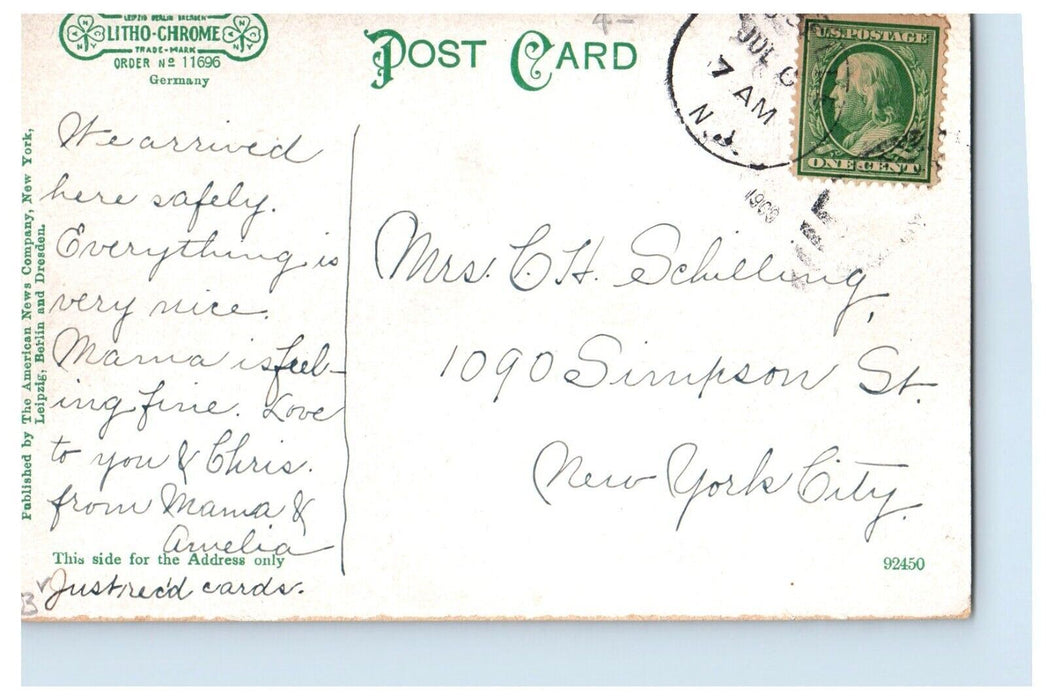 LEIPZIG BERLIN DRESDEN
LITHO-CHROME
TRADE-MARK
ORDER No 11696
Germany
POST CARD
JUL 6
7 AM
N.J.
1909
U.S. POSTAGE
ONE CENT
Published by The American News Company, New York,
Leipzig, Berlin and Dresden.
We arrived
here safely.
Everything is
very nice.
Mama is feel-
ing fine. Love
to you & Chris.
from Mama &
Amelia
This side for the Address only
Just rec'd cards.
Mrs. C. H. Schilling,
1090 Simpson St.
New York City.
92450